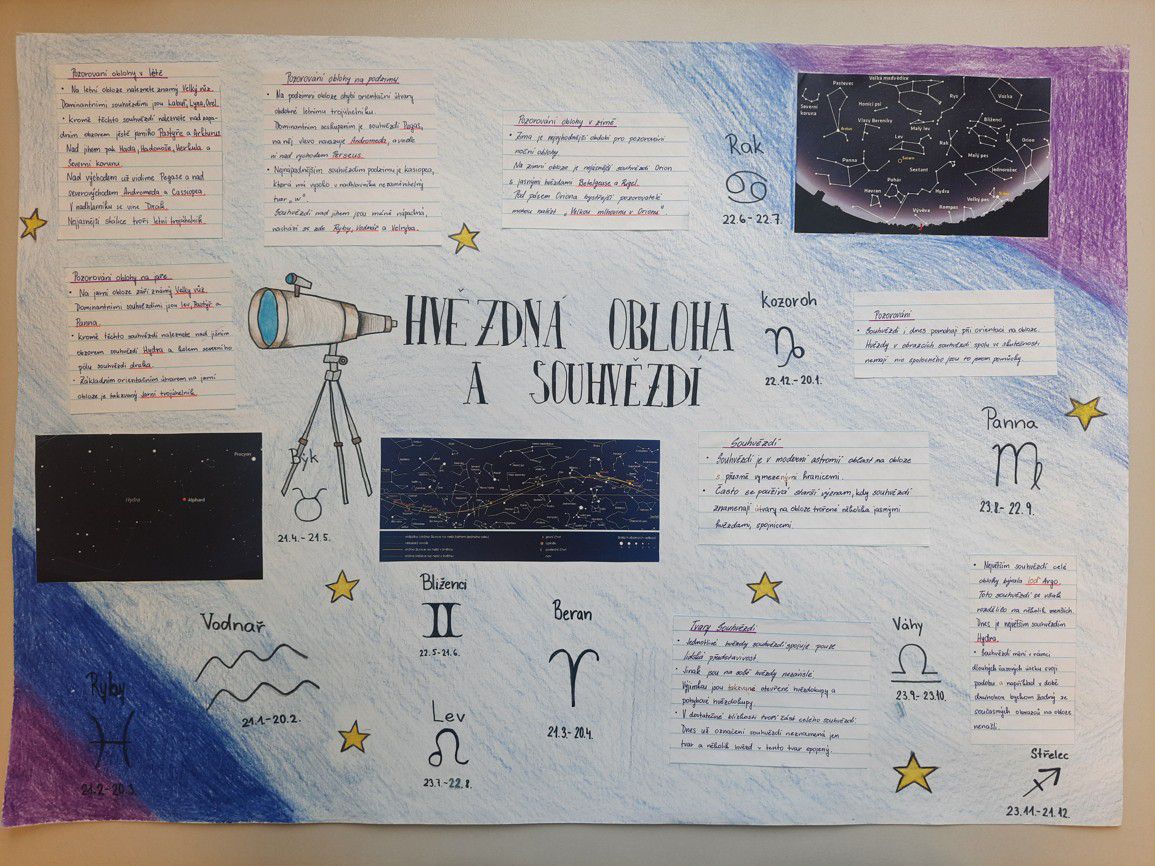 Pozorování oblohy v létě
• Na letní obloze naleznete známý Velký vůz.
Dominantními souhvězdími jsou Labuť, Lyra, Orel.
• kromě těchto souhvězdí naleznete nad
obzorem ještě Pastýře a Arkturus
Nad jihem pak Hada, Hadonoše, Herkula a
Severní korunu.
Nad východem už vidíme Pegase a nad
severovýchodem Andromeda a Cassiopea.
V nadhlavníku se vine Drak.
Nejjasnější stálice tvoří letní trojúhelník.
Pozorování oblohy na podzimu
• Na podzimní obloze chybí orientační útvary
obdobné letnímu trojúhelníku.
Dominantním seskupením je souhvězdí Pegas,
na něj vlevo navazuje Andromeda, a vedle
ní nad východem Perseus.
• Nejnápadnějším souhvězdím podzimu je kasiopea,
která má vysoko v nadhlavníku nezaměnitelný
tvar „w“.
Souhvězdí nad jihem jsou méně nápadná,
nachází se zde Ryby, Vodnář a Velryba.
Pozorování oblohy v zimě
• Zima je nejvýhodnější období pro pozorování
noční oblohy.
Na zimní obloze je nejjasnější souhvězdí Orion
s jasnými hvězdami Betelgeuse a Rigel.
Pod pásem Oriona bystřejší pozorovatelé
mohou nalézt „Velkou mlhovinu v Orionu“
Rak
22.6-22.7.
Pastevec
Velká medvědice
Rys
Vozka
Severní
koruna
Honicí psi
Vlasy Bereniky
Malý lev
Blíženci
Lev
Rak
Orion
Panna
Malý pes
Sextant
Jednorožec
Pohár
Havran
Hydra
Velký pes
Vývěva
Kompas
Pozorování oblohy na jaře
• Na jarní obloze září známý Velký vůz.
Dominantními souhvězdími jsou Lev, Pastýř a
Panna.
• kromě těchto souhvězdí naleznete nad jižním
obzorem souhvězdí Hydra a kolem severního
pólu souhvězdí draka.
• Základním orientačním útvarem na jarní
obloze je takzvaný Jarní trojúhelník
HVĚZDNÁ OBLOHA
A SOUHVĚZDÍ
Kozoroh
22.12.-20.1.
Pozorování
• Souhvězdí i dnes pomáhají při orientaci na obloze.
Hvězdy v obrazcích souhvězdí spolu ve skutečnosti
nemají nic společného jsou to jenom pomůcky
Panna
23.8-22.9.
Procyon
Hydra
Alphard
Býk
21.4.-21.5.
Souhvězdí
• Souhvězdí je v moderní astromii oblast na obloze
s přesně vymezenými hranicemi.
• Často se používá starší význam, kdy souhvězdí
znamenají útvary na obloze tvořené několika jasnými
hvězdami, spojnicemi.
Blíženci
22.5-21.6.
Beran
21.3.-20.4.
Vodnář
21.1-20.2.
Ryby
21.2-20.3.
Lev
23.7.-22.8.
Tvary Souhvězdí
• Jednotlivé hvězdy souhvězdí spojuje pouze
lidská představivost.
• Jinak jsou na sobě hvězdy nezávislé
Výjimkou jsou takzvané otevřené hvězdokupy a
pohybové hvězdokupy.
• V dostatečné blízkosti tvoří část celého souhvězdí
Dnes už označení souhvězdí neznamená jen
tvar a několik hvězd v tento tvar spojený.
Váhy
23.9.-23.10.
• Největším souhvězdí celé
oblohy bývala loď Argo.
Toto souhvězdí se však
rozdělilo na několik menších.
Dnes je největším souhvězdím
Hydra.
• Souhvězdí mění v rámci
dlouhých časových úseků svoji
podobu a například v době
dinosaurů bychom žádný ze
současných obrazců na obloze
nenašli.
Střelec
23.11.-21.12.